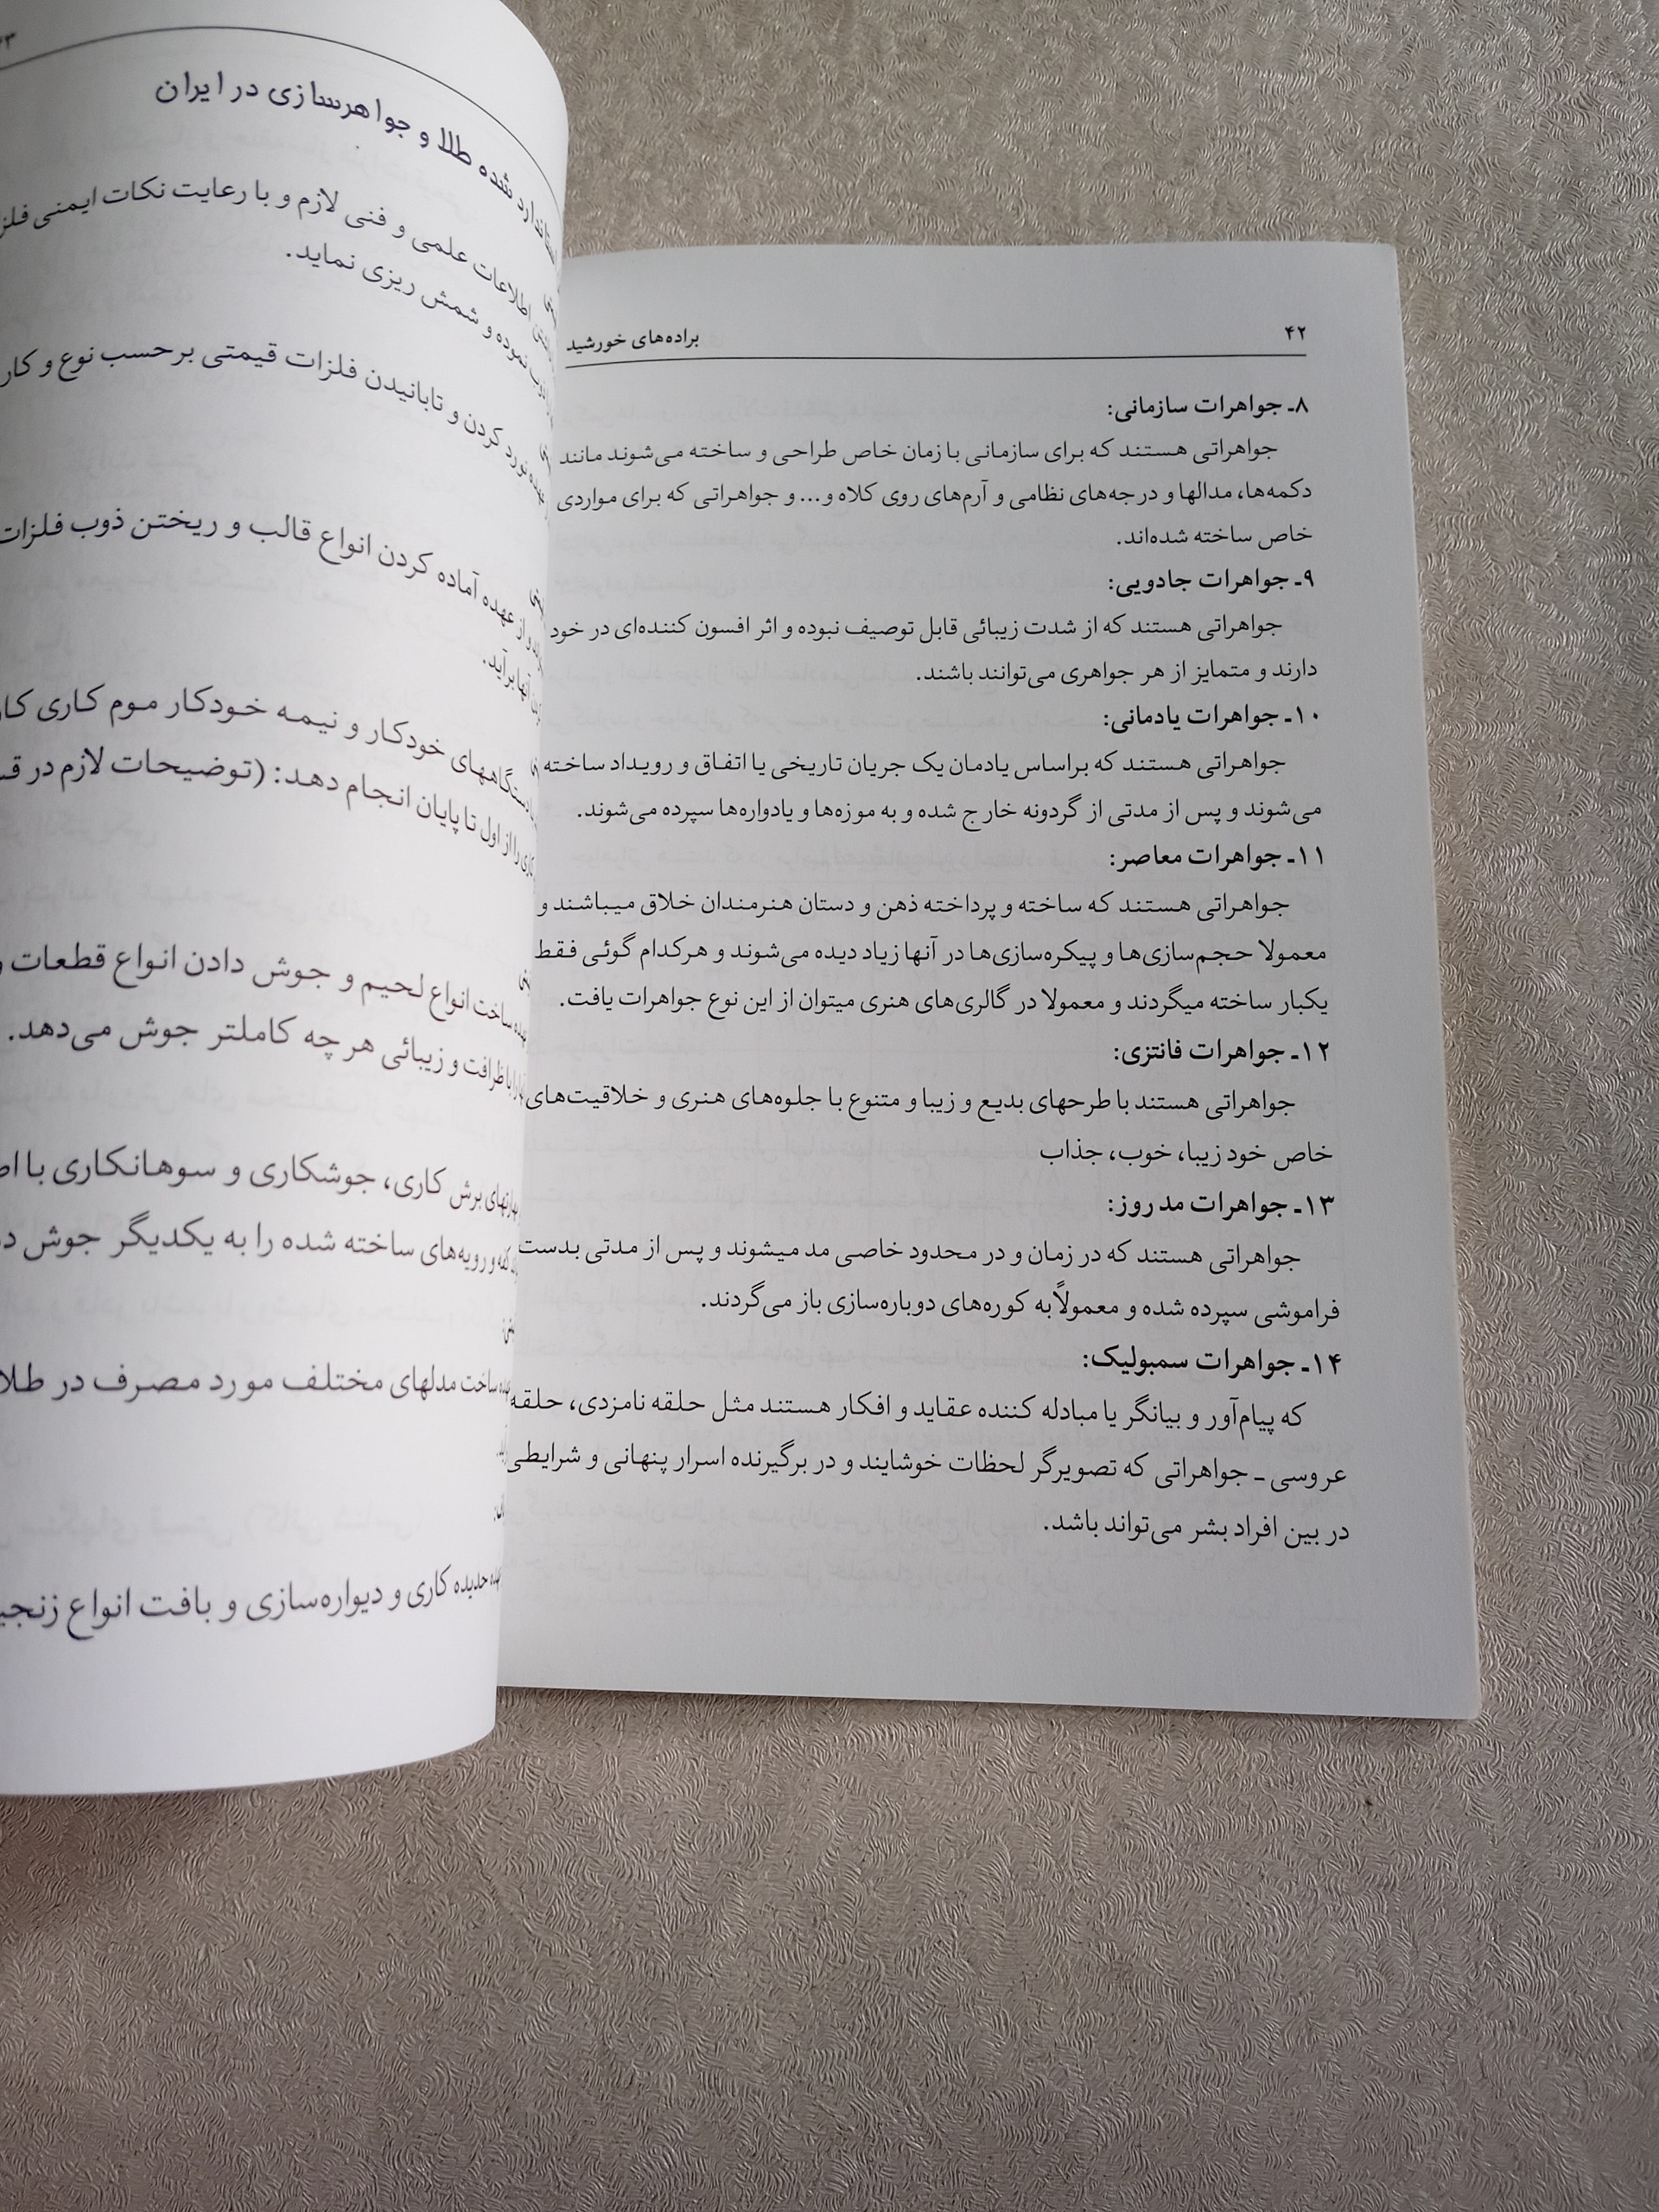 ۴۲
براده‌های خورشید
۸ـ جواهرات سازمانی:
جواهراتی هستند که برای سازمانی با زمان خاص طراحی و ساخته می‌شوند مانند
دکمه‌ها، مدالها و درجه‌های نظامی و آرم‌های روی کلاه و... و جواهراتی که برای مواردی
خاص ساخته شده‌اند.
۹ـ جواهرات جادویی:
جواهراتی هستند که از شدت زیبائی قابل توصیف نبوده و اثر افسون کننده‌ای در خود
دارند و متمایز از هر جواهری می‌توانند باشند.
۱۰ـ جواهرات یادمانی:
جواهراتی هستند که براساس یادمان یک جریان تاریخی یا اتفاق و رویداد ساخته
می‌شوند و پس از مدتی از گردونه خارج شده و به موزه‌ها و یادواره‌ها سپرده می‌شوند.
۱۱ـ جواهرات معاصر:
جواهراتی هستند که ساخته و پرداخته ذهن و دستان هنرمندان خلاق میباشند و
معمولا حجم‌سازی‌ها و پیکره‌سازی‌ها در آنها زیاد دیده می‌شوند و هرکدام گوئی فقط
یکبار ساخته میگردند و معمولا در گالری‌های هنری میتوان از این نوع جواهرات یافت.
۱۲ـ جواهرات فانتزی:
جواهراتی هستند با طرحهای بدیع و زیبا و متنوع با جلوه‌های هنری و خلاقیت‌های
خاص خود زیبا، خوب، جذاب
۱۳ـ جواهرات مد روز:
جواهراتی هستند که در زمان و در محدود خاصی مد میشوند و پس از مدتی بدست
فراموشی سپرده شده و معمولاً به کوره‌های دوباره‌سازی باز می‌گردند.
۱۴ـ جواهرات سمبولیک:
که پیام‌آور و بیانگر یا مبادله کننده عقاید و افکار هستند مثل حلقه نامزدی، حلقه
عروسی ـ جواهراتی که تصویرگر لحظات خوشایند و در برگیرنده اسرار پنهانی و شرایطی
در بین افراد بشر می‌تواند باشد.
شده طلا و جواهرسازی در ایران
اطلاعات علمی و فنی لازم و با رعایت نکات ایمنی
نموده و شمش ریزی نماید.
نورد کردن و تابانیدن فلزات قیمتی برحسب نوع و کار
از عهده آماده کردن انواع قالب و ریختن ذوب فلزات
آنها برآید.
دستگاههای خودکار و نیمه خودکار موم کاری
را از اول تا پایان انجام دهد: (توضیحات لازم در
ساخت انواع لحیم و جوش دادن انواع قطعات
با ظرافت و زیبائی هر چه کاملتر جوش می‌دهد.
برش کاری، جوشکاری و سوهانکاری با
و رویه‌های ساخته شده را به یکدیگر جوش
ساخت مدلهای مختلف مورد مصرف در طلا
حدیده کاری و دیواره‌سازی و بافت انواع